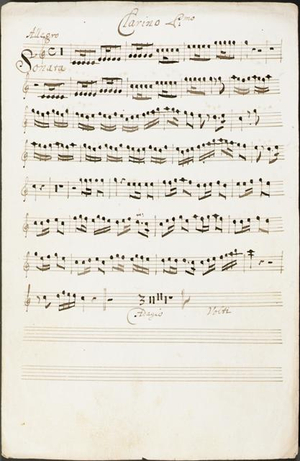 Clarino Pmo
Allegro
Sonata
Adagio
Volti